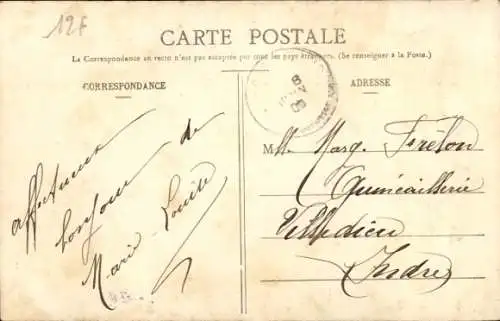 12f
CARTE POSTALE
La Correspondance au recto n'est pas acceptée par tous les pays étrangers. (Se renseigner à la Poste.)
CORRESPONDANCE
ADRESSE
Affectueux
bonjour de
Marie-Louise
8
05
Mlle Marg. Frélon
Quincaillerie
Villedieu
(Indre)